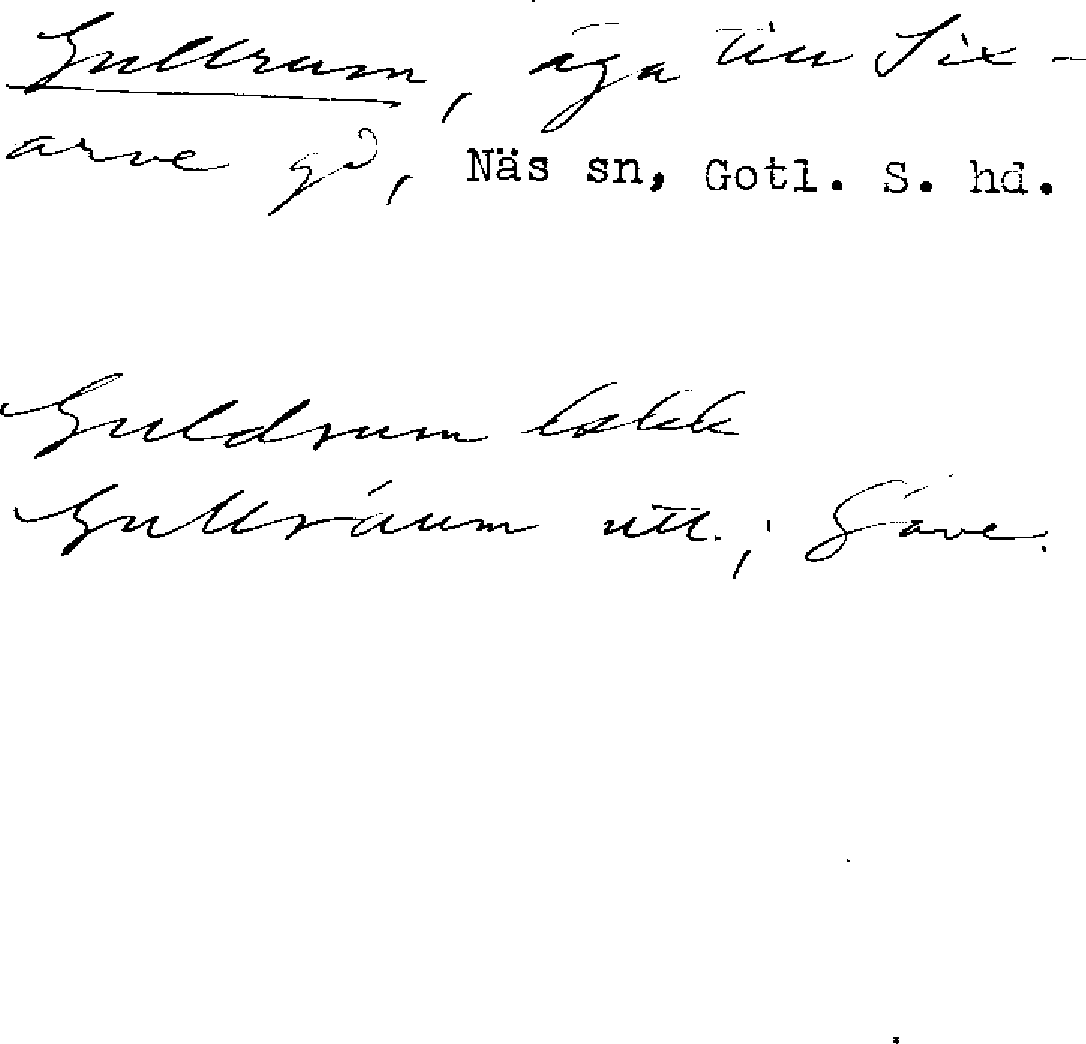 Gullrum, äga till Six-
arve gd, Näs sn, Gotl. S. hd.
Guldrum lokk
Gullráum utt.; Säve.